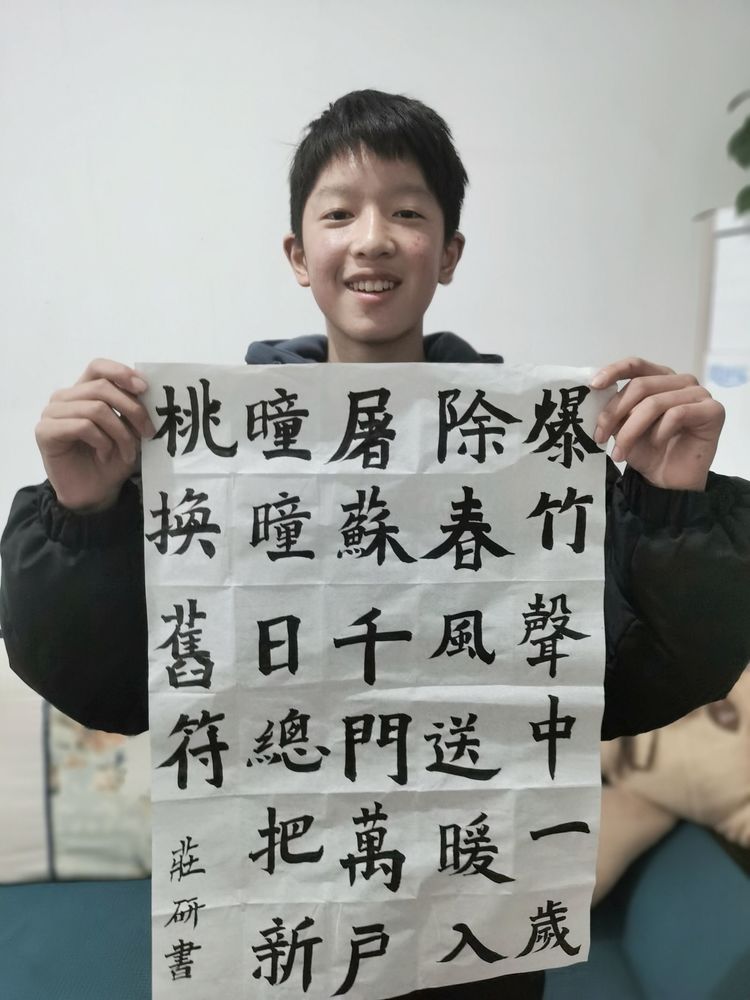 爆竹聲中一歲
除春風送暖入
屠蘇千門萬戶
曈曈日總把新
桃換舊符
莊研書